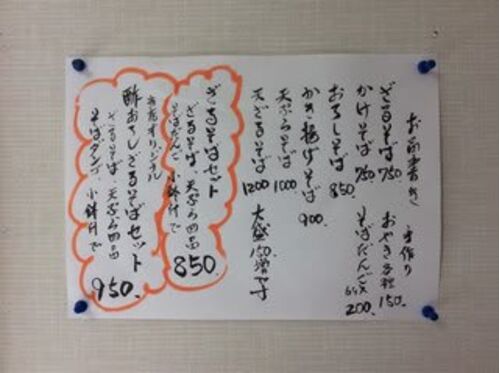 お品書き
ざるそば 750
かけそば 750
おろしそば 850
かき揚げそば 900
天ぷらそば 1000
天ざるそば 1200
手作り
おやき各種 150.
そばだんご 200.
大盛 150増です
ざるそばセット
ざるそば、天ぷら四品
そばだんご 小鉢付で 850.
オリジナル
酢おろしざるそばセット
ざるそば、天ぷら四品
そばダンゴ、小鉢付で 950.